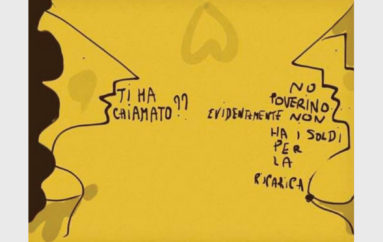 TI HA
CHIAMATO??
NO
POVERINO
EVIDENTEMENTE NON
HA I SOLDI
PER
LA
RICARICA